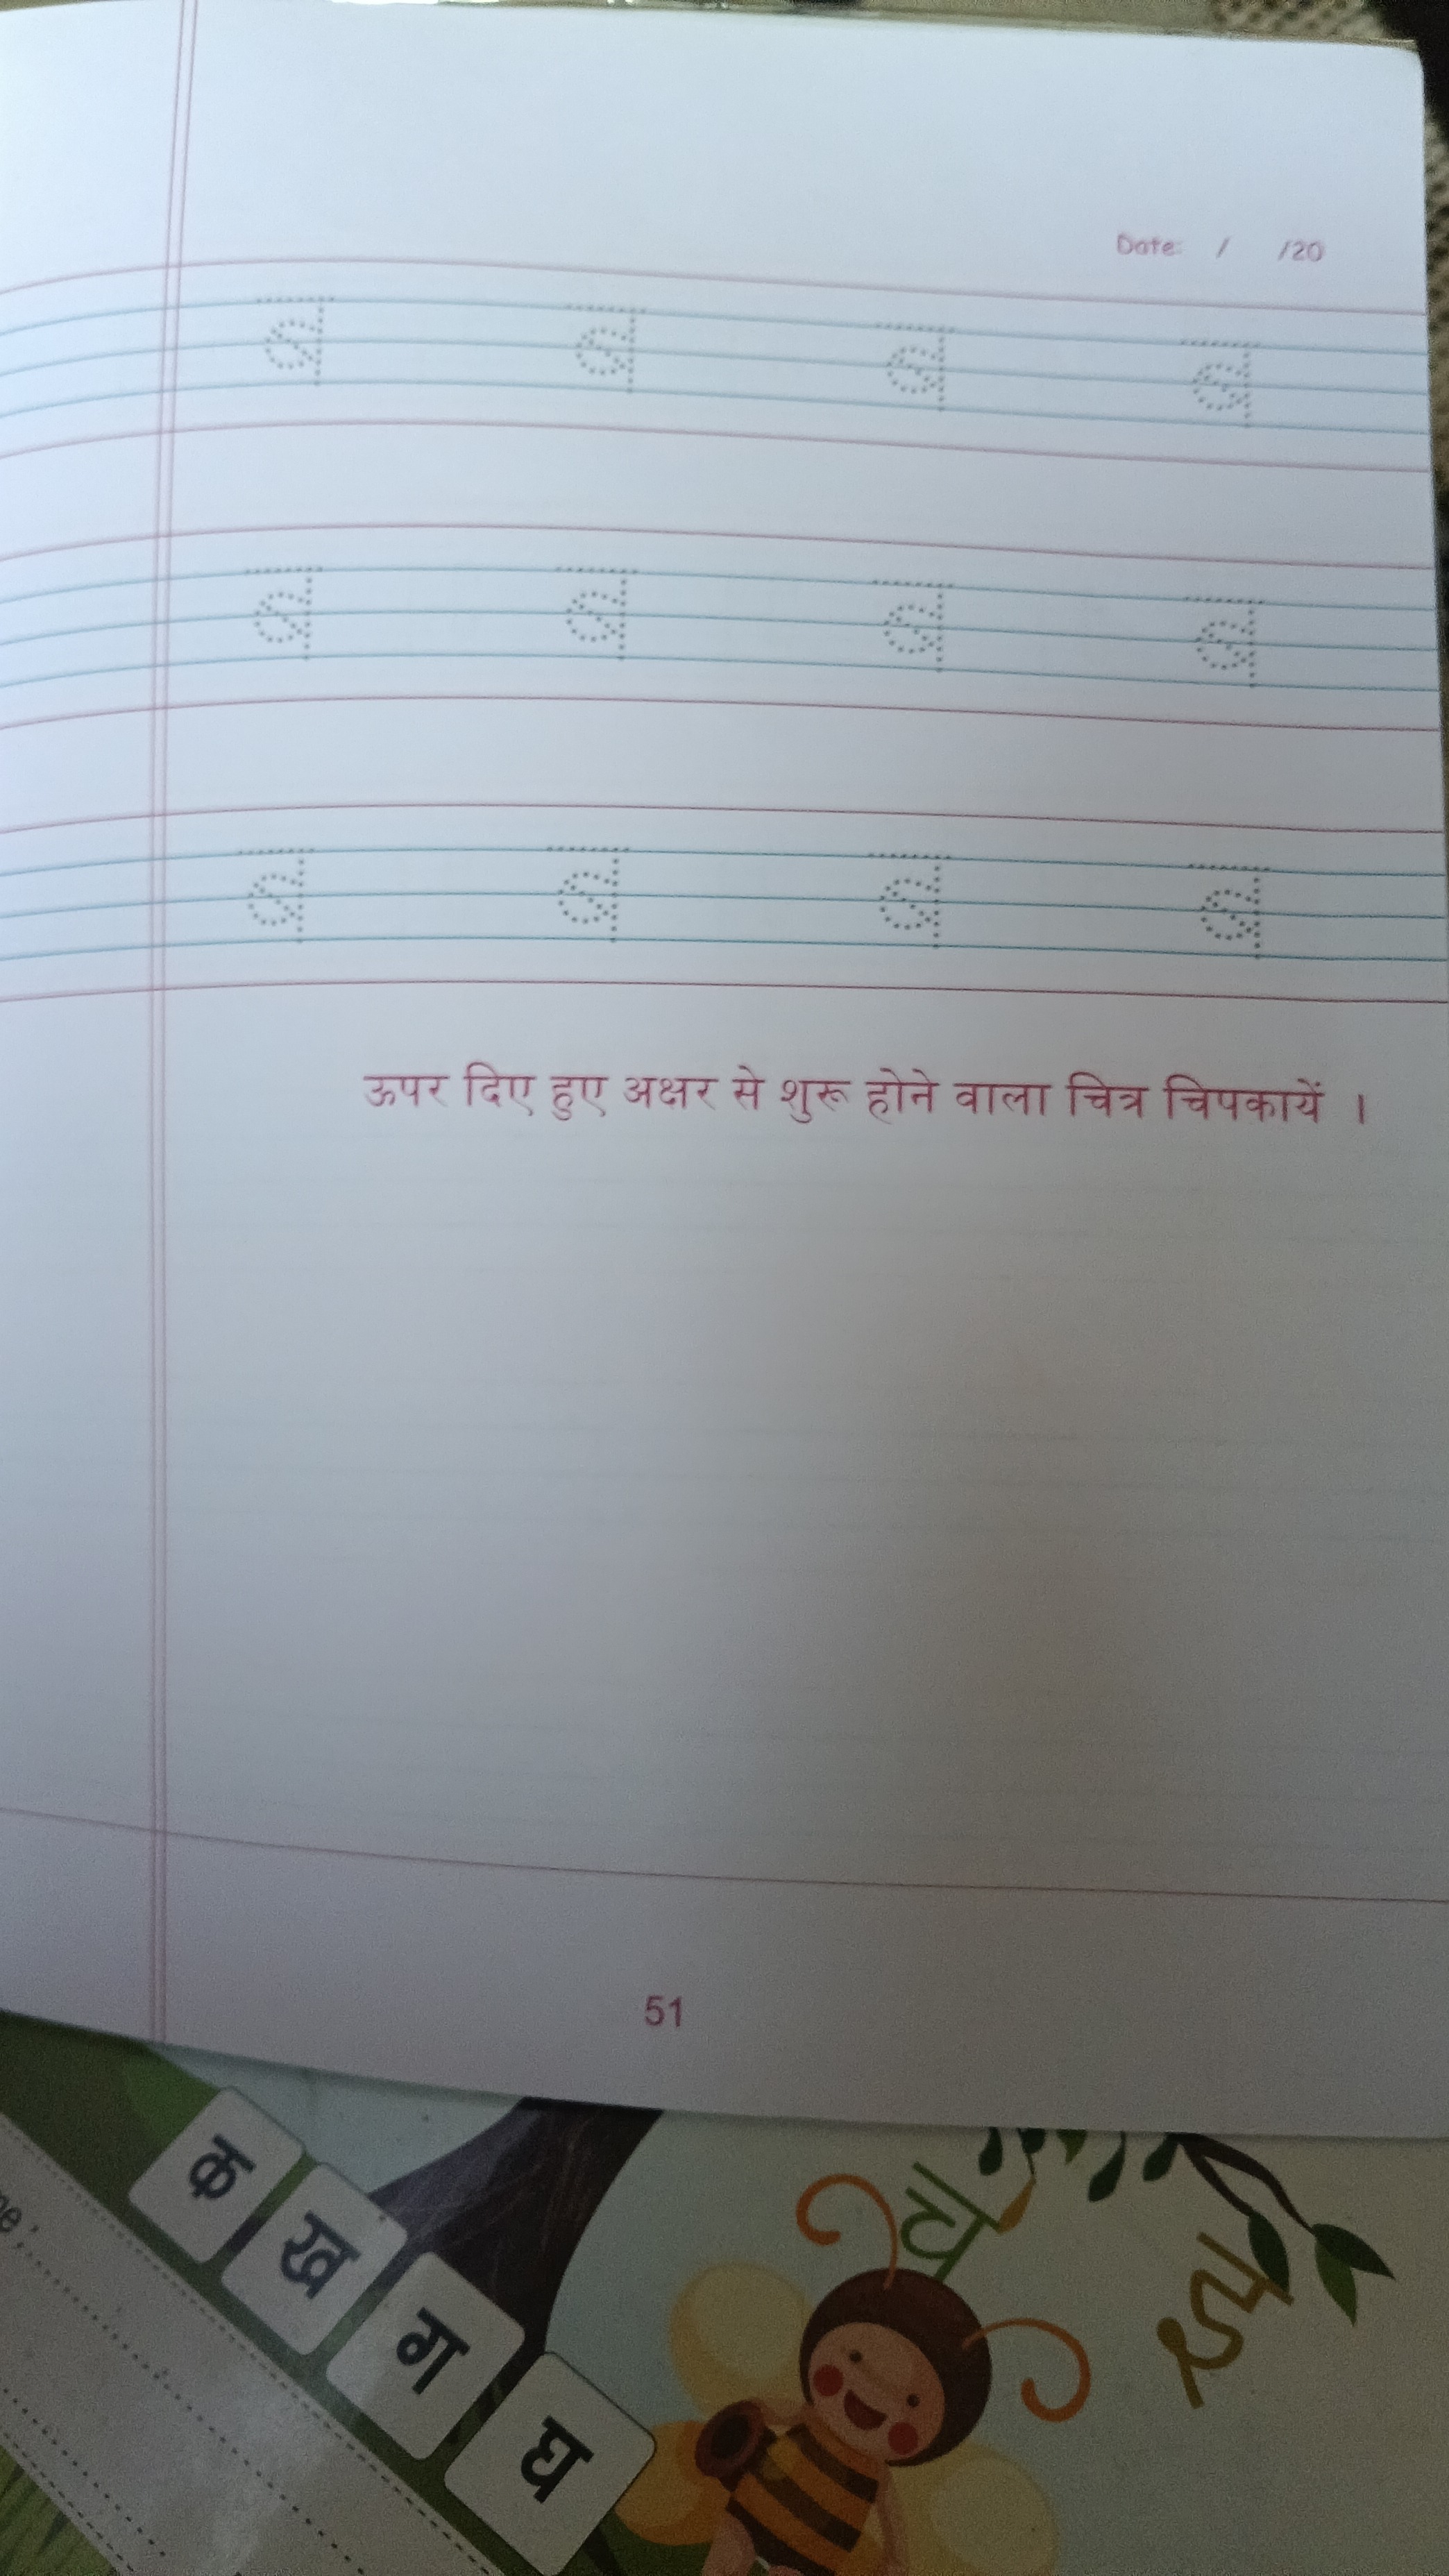 Date: / /20
ब ब ब ब
ब ब ब ब
ब ब ब ब
ऊपर दिए हुए अक्षर से शुरू होने वाला चित्र चिपकायें ।
51
क ख ग घ